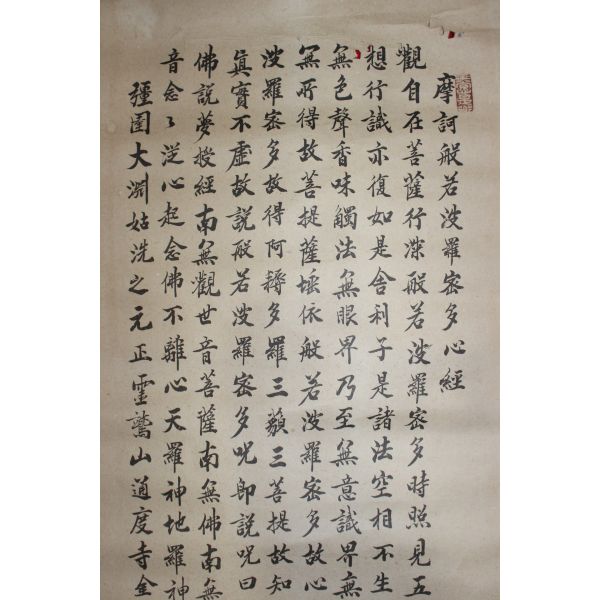 摩訶般若波羅密多心經
觀自在菩薩行深般若波羅密多時照見五
想行識亦復如是舍利子是諸法空相不生
無色聲香味觸法無眼界乃至無意識界無
無所得故菩提薩埵依般若波羅密多故心
波羅密多故得阿耨多羅三藐三菩提故知
眞實不虛故說般若波羅密多呪即說呪曰
佛說夢授經南無觀世音菩薩南無佛南無
音念〻從心起念佛不離心天羅神地羅神
疆圉大淵姑洗之元正靈鷲山通度寺金